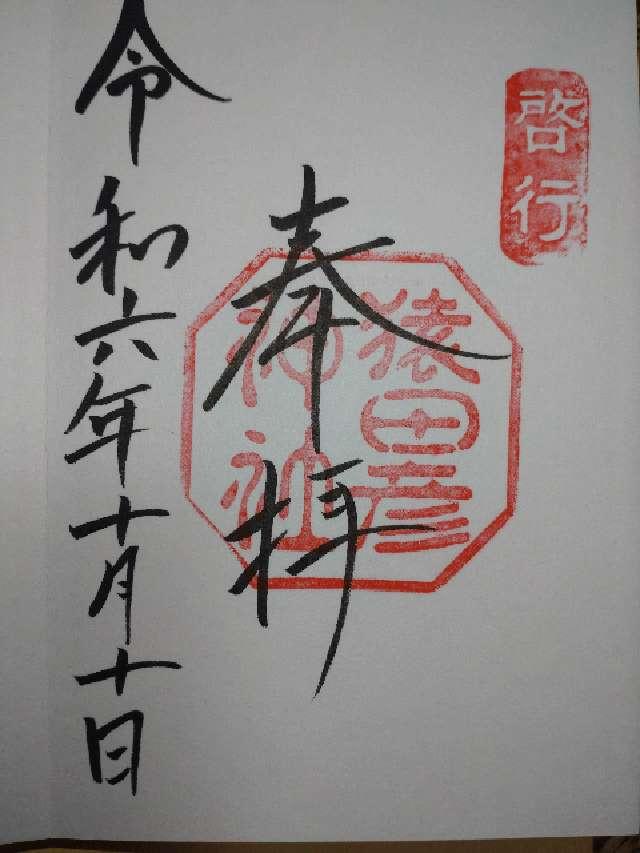 啓行
奉拝
猿田彦
神社
令和六年十月十日